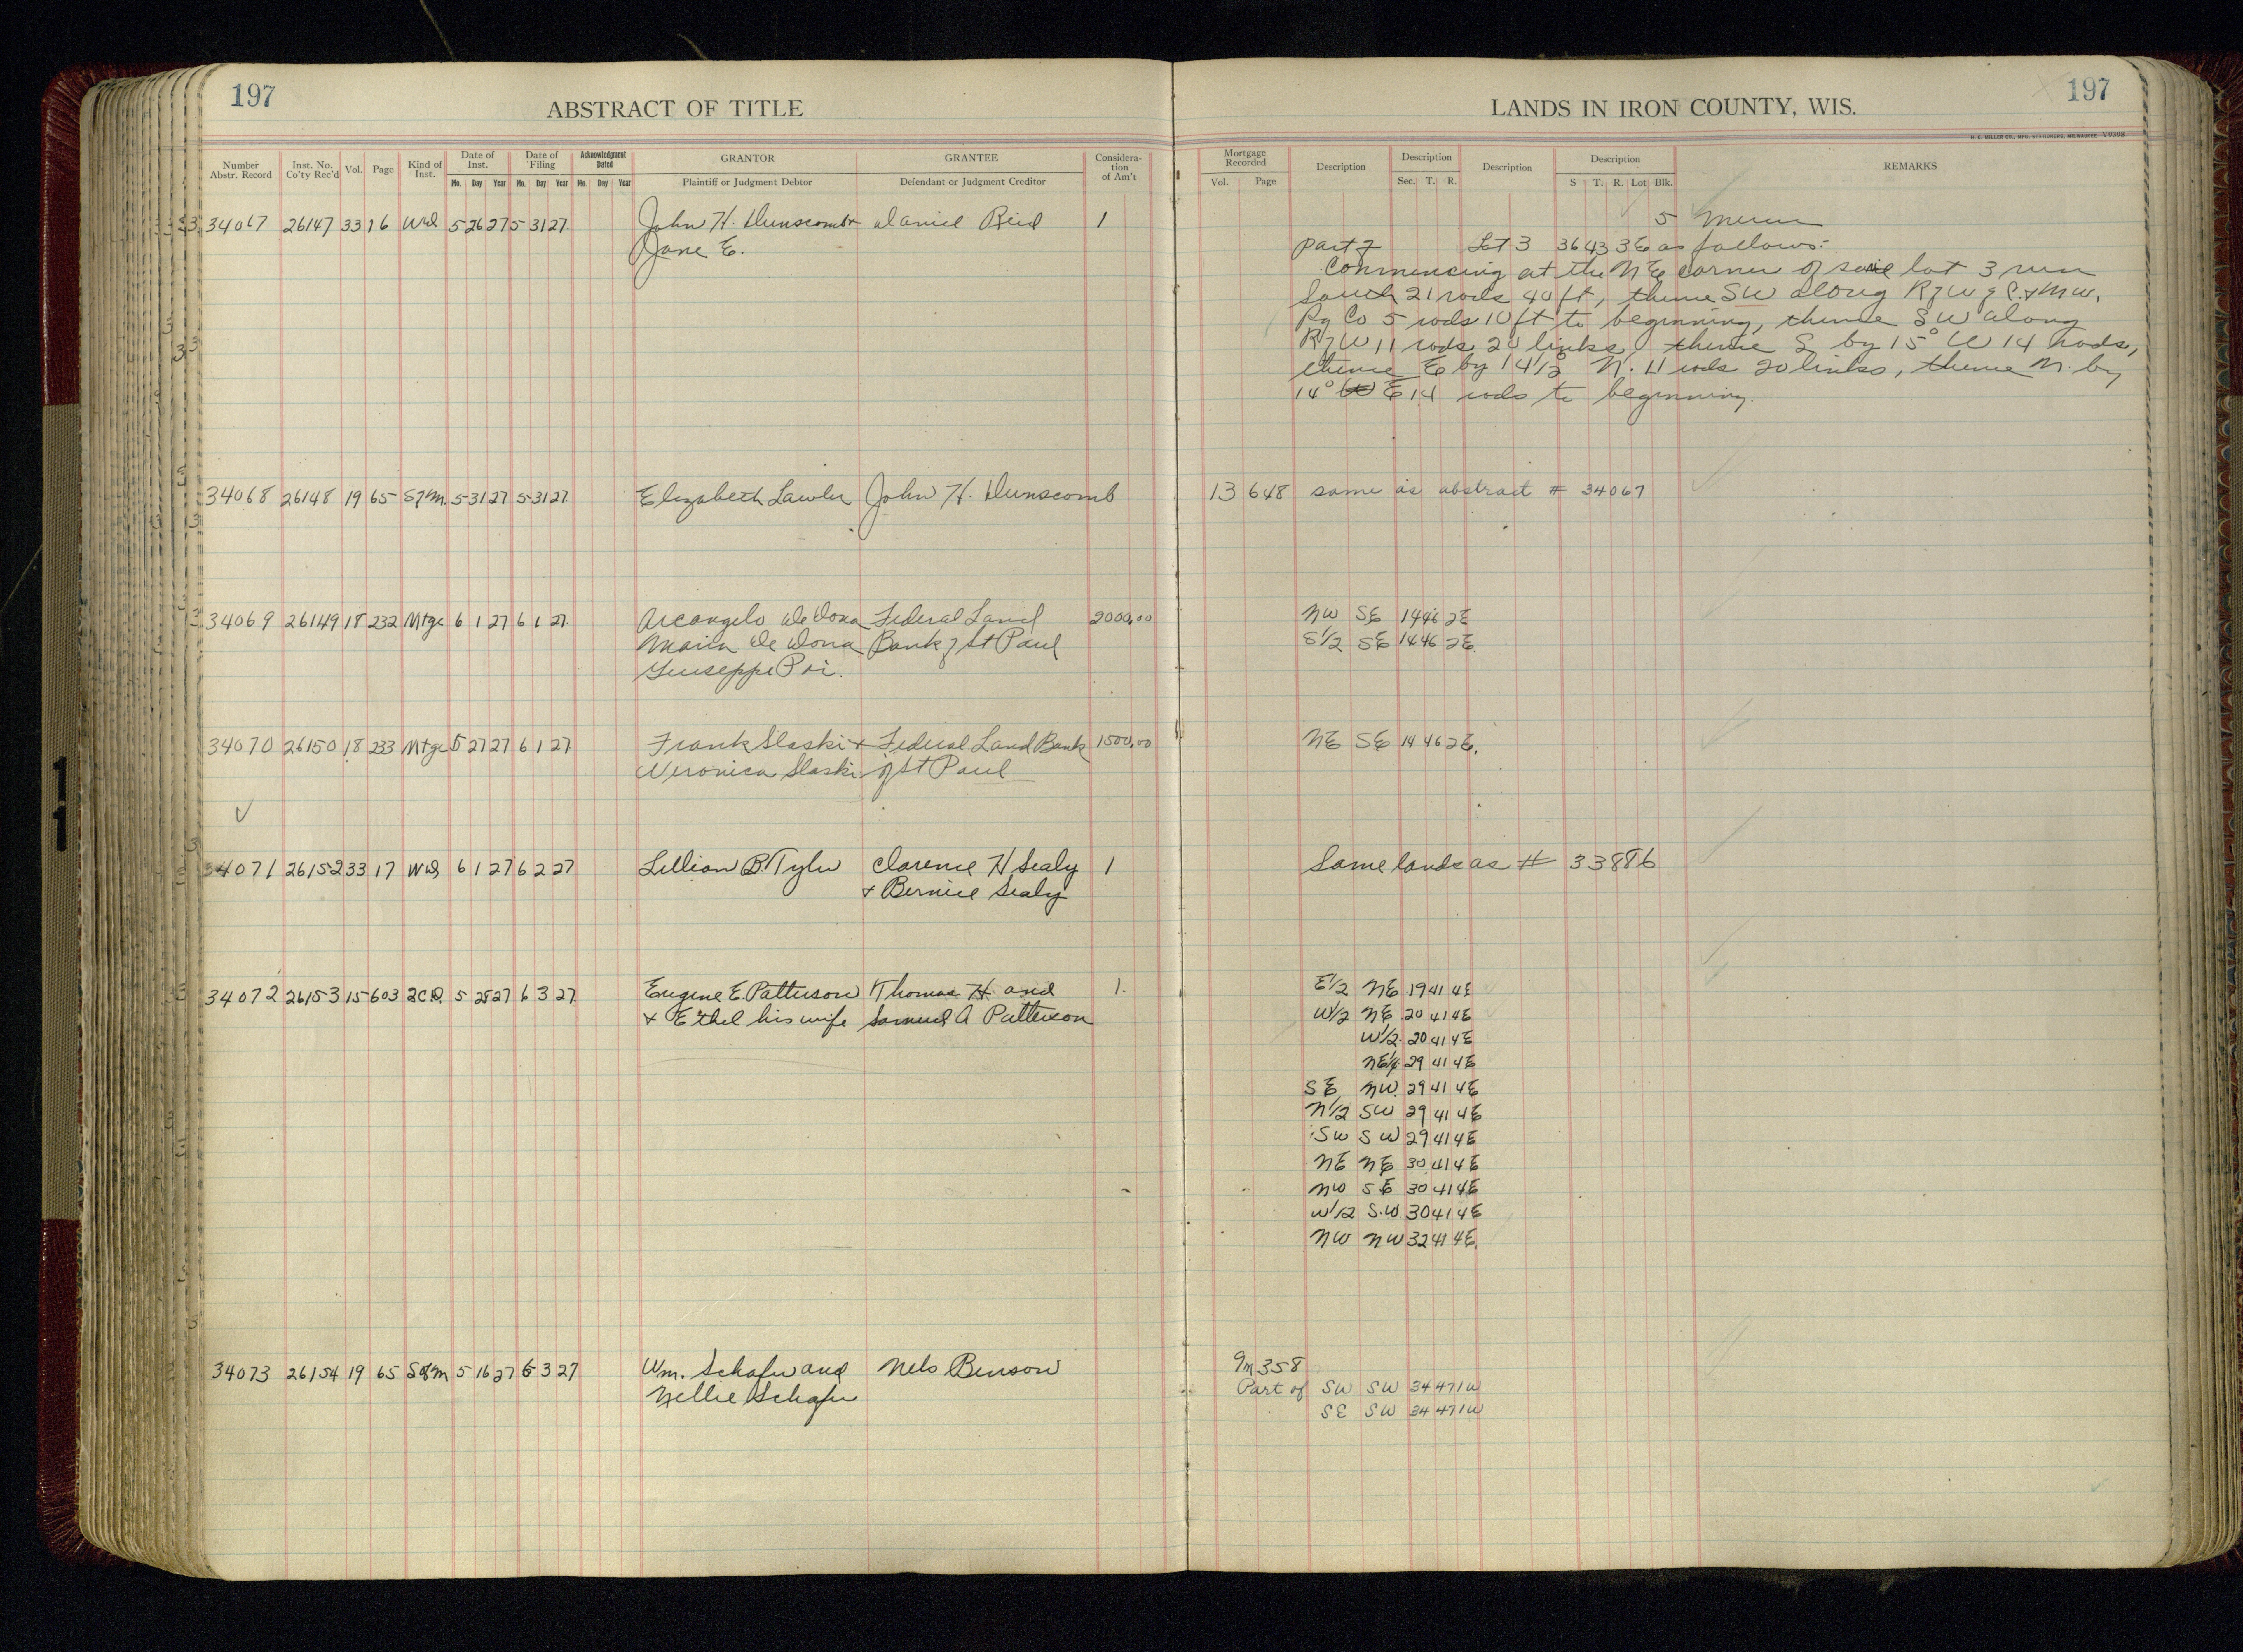 197
ABSTRACT OF TITLE
Number Abstr. Record
Inst. No. Co'ty Rec'd
Vol.
Page
Kind of Inst.
Date of Inst.
Date of Filing
Acknowledgment Dated
GRANTOR
GRANTEE
Considera-tion of Am't
Mo. Day Year Mo. Day Year Mo. Day Year
Plaintiff or Judgment Debtor
Defendant or Judgment Creditor
34067 26147 33 16 Wd 5 26 27 5 31 27 John H. Dunscomb + Daniel Reid 1
Jane E.
34068 26148 19 65 S of M. 5 31 27 5 31 27 Elizabeth Lawler John H. Dunscomb
34069 26149 18 232 Mtge 6 1 27 6 1 27 Arcangelo De Dona Federal Land 2000.00
Maria De Dona Bank of St Paul
Giuseppe Poi.
34070 26150 18 233 Mtge 5 27 27 6 1 27 Frank Slaski + Federal Land Bank 1500.00
Veronica Slaski of St Paul
34071 26152 33 17 Wd 6 1 27 6 2 27 Lillian B. Tyler Clarence H Sealy 1
+ Bernice Sealy
34072 26153 15 603 2C.D. 5 28 27 6 3 27 Eugene E. Patterson Thomas H and 1.
+ Ethel his wife Samuel A Patterson
34073 26154 19 65 S of M 5 16 27 6 3 27 Wm. Schafer and Nels Benson
Nellie Schafer
LANDS IN IRON COUNTY, WIS.
197
H. C. MILLER CO., MFG. STATIONERS, MILWAUKEE V9398
Mortgage Recorded
Description
Description
Description
Description
REMARKS
Vol. Page Sec. T. R. S T. R. Lot Blk.
5 Mercer
Part of Lot 3 36 43 3E as follows:-
Commencing at the NE corner of said lot 3 run
South 21 rods 40 ft, thence SW along R of W of C. & N W.
Ry Co 5 rods 10 ft to beginning, thence SW along
R of W 11 rods 20 links, thence S by 15° W 14 rods,
thence E by 14 1/2° N. 11 rods 20 links, thence N. by
14° E 14 rods to beginning.
13 648 same as abstract # 34067
NW SE 14 46 2E
S1/2 SE 14 46 2E.
NE SE 14 46 2E.
Same lands as # 33886
E1/2 NE 19 41 4E
W1/2 NE 20 41 4E
W1/2 20 41 4E
NE1/4 29 41 4E
SE NW 29 41 4E
N1/2 SW 29 41 4E
SW SW 29 41 4E
NE NE 30 41 4E
NW SE 30 41 4E
W1/2 S.W. 30 41 4E
NW NW 32 41 4E.
9m 358
Part of SW SW 34 47 1W
SE SW 34 47 1W